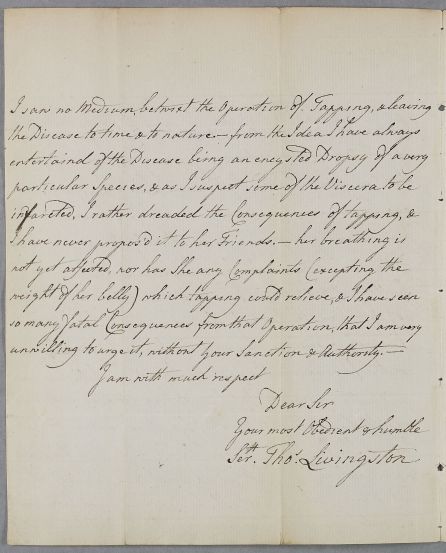 I saw no Medium, betwixt the Operation of Tapping, & leaving
the Disease to time & to nature — from the Idea I have always
entertaind of the Disease being an encysted Dropsy of a very
particular Species, & as I suspect some of the Viscera to be
infarcted, I rather dreaded the Consequences of tapping, &
I have never propos'd it to her Friends. — her breathing is
not yet affected, nor has She any Complaints (excepting the
weight of her belly) which tapping could relieve, & I have seen
so many fatal Consequences from that Operation, that I am very
unwilling to urge it, without your Sanction & Authority. —
I am with much respect
Dear Sir
Your most Obedient & humble
Sert. Thos. Livingston